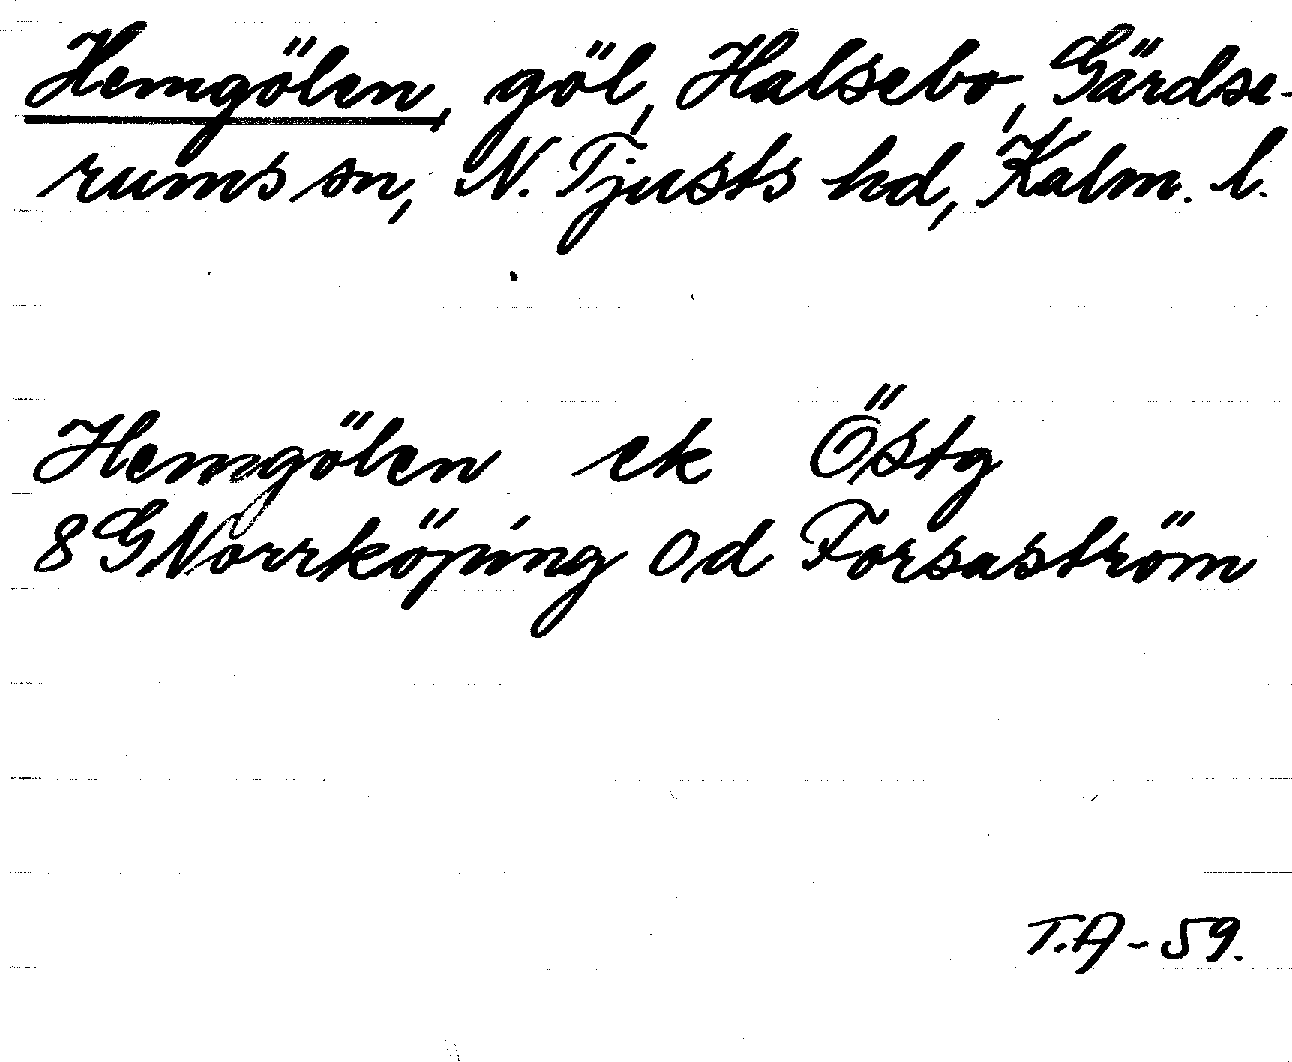 Hemgölen, göl, Halsebo, Gärdse-
rums sn, N. Tjusts hd, Kalm. l.
Hemgölen ek Östg
8G Norrköping 0,d Forsaström
T.A-59.